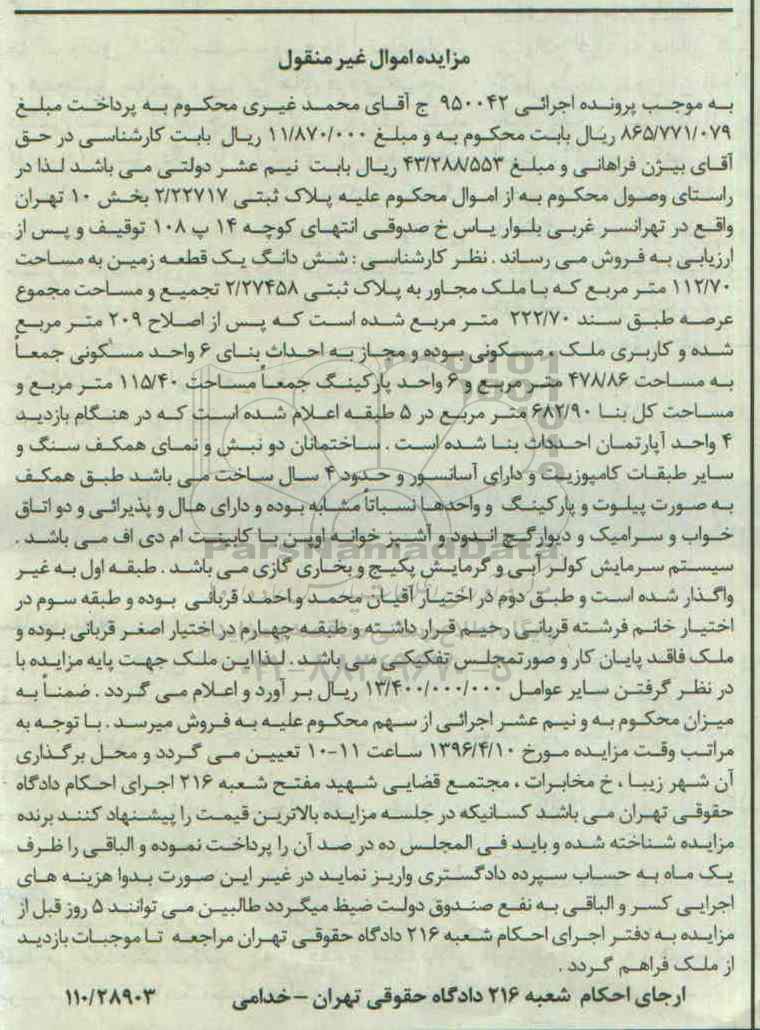 مزایده اموال غیر منقول
به موجب پرونده اجرائی ۹۵۰۰۴۲ ج آقای محمد غیری محکوم به پرداخت مبلغ
۸۶۵/۷۷۱/۰۷۹ ریال بابت محکوم به و مبلغ ۱۱/۸۷۰/۰۰۰ ریال بابت کارشناسی در حق
آقای بیژن فراهانی و مبلغ ۴۳/۲۸۸/۵۵۳ ریال بابت نیم عشر دولتی می باشد لذا در
راستای وصول محکوم به از اموال محکوم علیه پلاک ثبتی ۲/۲۲۷۱۷ بخش ۱۰ تهران
واقع در تهرانسر غربی بلوار یاس خ صدوقی انتهای کوچه ۱۴ پ ۱۰۸ توقیف و پس از
ارزیابی به فروش می رساند . نظر کارشناسی : شش دانگ یک قطعه زمین به مساحت
۱۱۲/۷۰ متر مربع که با ملک مجاور به پلاک ثبتی ۲/۲۷۴۵۸ تجمیع و مساحت مجموع
عرصه طبق سند ۲۲۲/۷۰ متر مربع شده است که پس از اصلاح ۲۰۹ متر مربع
شده و کاربری ملک ، مسکونی بوده و مجاز به احداث بنای ۶ واحد مسکونی جمعاً
به مساحت ۴۷۸/۸۶ متر مربع و ۶ واحد پارکینگ جمعاً مساحت ۱۱۵/۴۰ متر مربع و
مساحت کل بنا ۶۸۲/۹۰ متر مربع در ۵ طبقه اعلام شده است که در هنگام بازدید
۴ واحد آپارتمان احداث بنا شده است . ساختمانان دو نبش و نمای همکف سنگ و
سایر طبقات کامپوزیت و دارای آسانسور و حدود ۴ سال ساخت می باشد طبق همکف
به صورت پیلوت و پارکینگ و واحدها نسباتاً مشابه بوده و دارای هال و پذیرائی و دو اتاق
خواب و سرامیک و دیوارگچ اندود و آشپز خوانه اوپن با کابینت ام دی اف می باشد .
سیستم سرمایش کولر آبی و گرمایش پکیج و بخاری گازی می باشد . طبقه اول به غیر
واگذار شده است و طبق دوم در اختیار آقیان محمد و احمد قربانی بوده و طبقه سوم در
اختیار خانم فرشته قربانی رحیم قرار داشته و طبقه چهارم در اختیار اصغر قربانی بوده و
ملک فاقد پایان کار و صورتمجلس تفکیکی می باشد . لذا این ملک جهت پایه مزایده با
در نظر گرفتن سایر عوامل ۱۳/۴۰۰/۰۰۰/۰۰۰ ریال بر آورد و اعلام می گردد . ضمناً به
میزان محکوم به و نیم عشر اجرائی از سهم محکوم علیه به فروش میرسد . با توجه به
مراتب وقت مزایده مورخ ۱۳۹۶/۴/۱۰ ساعت ۱۱-۱۰ تعیین می گردد و محل برگذاری
آن شهر زیبا ، خ مخابرات ، مجتمع قضایی شهید مفتح شعبه ۲۱۶ اجرای احکام دادگاه
حقوقی تهران می باشد کسانیکه در جلسه مزایده بالاترین قیمت را پیشنهاد کنند برنده
مزایده شناخته شده و باید فی المجلس ده در صد آن را پرداخت نموده و الباقی را ظرف
یک ماه به حساب سپرده دادگستری واریز نماید در غیر این صورت بدوا هزینه های
اجرایی کسر و الباقی به نفع صندوق دولت ضبط میگردد طالبین می توانند ۵ روز قبل از
مزایده به دفتر اجرای احکام شعبه ۲۱۶ دادگاه حقوقی تهران مراجعه تا موجبات بازدید
از ملک فراهم گردد .
ارجای احکام شعبه ۲۱۶ دادگاه حقوقی تهران – خدامی ۱۱۰/۲۸۹۰۳
ParsNamadData